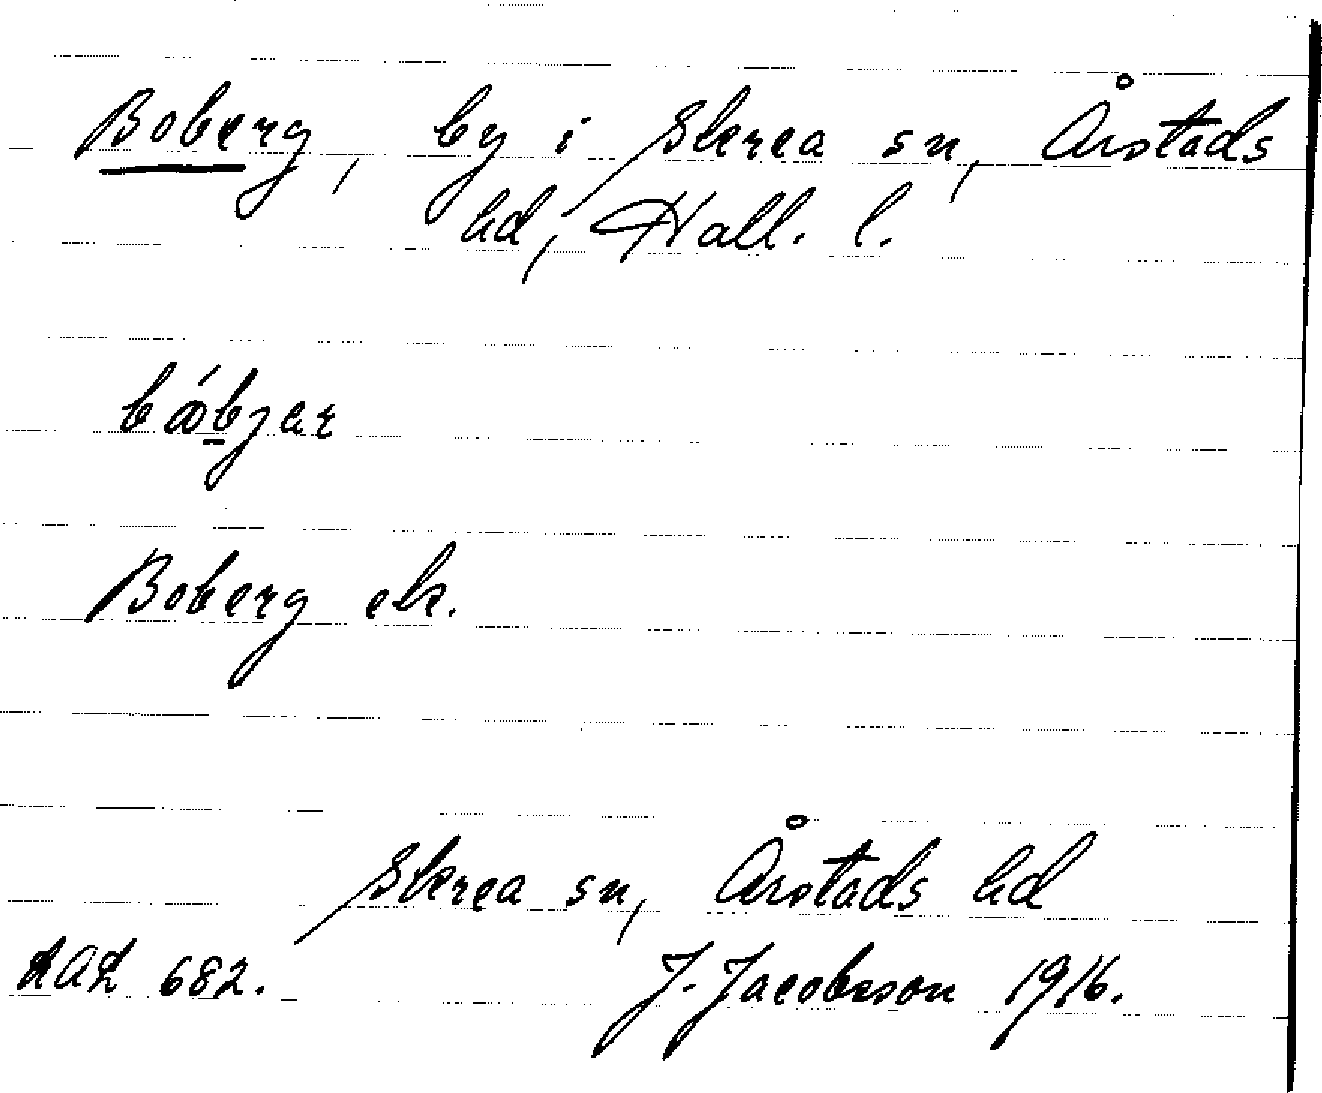 Boberg, by i Skrea sn, Årstads
hd, Hall. l.
Boberg ek.
Skrea sn, Årstads hd
682.
J. Jacobsson 1916.